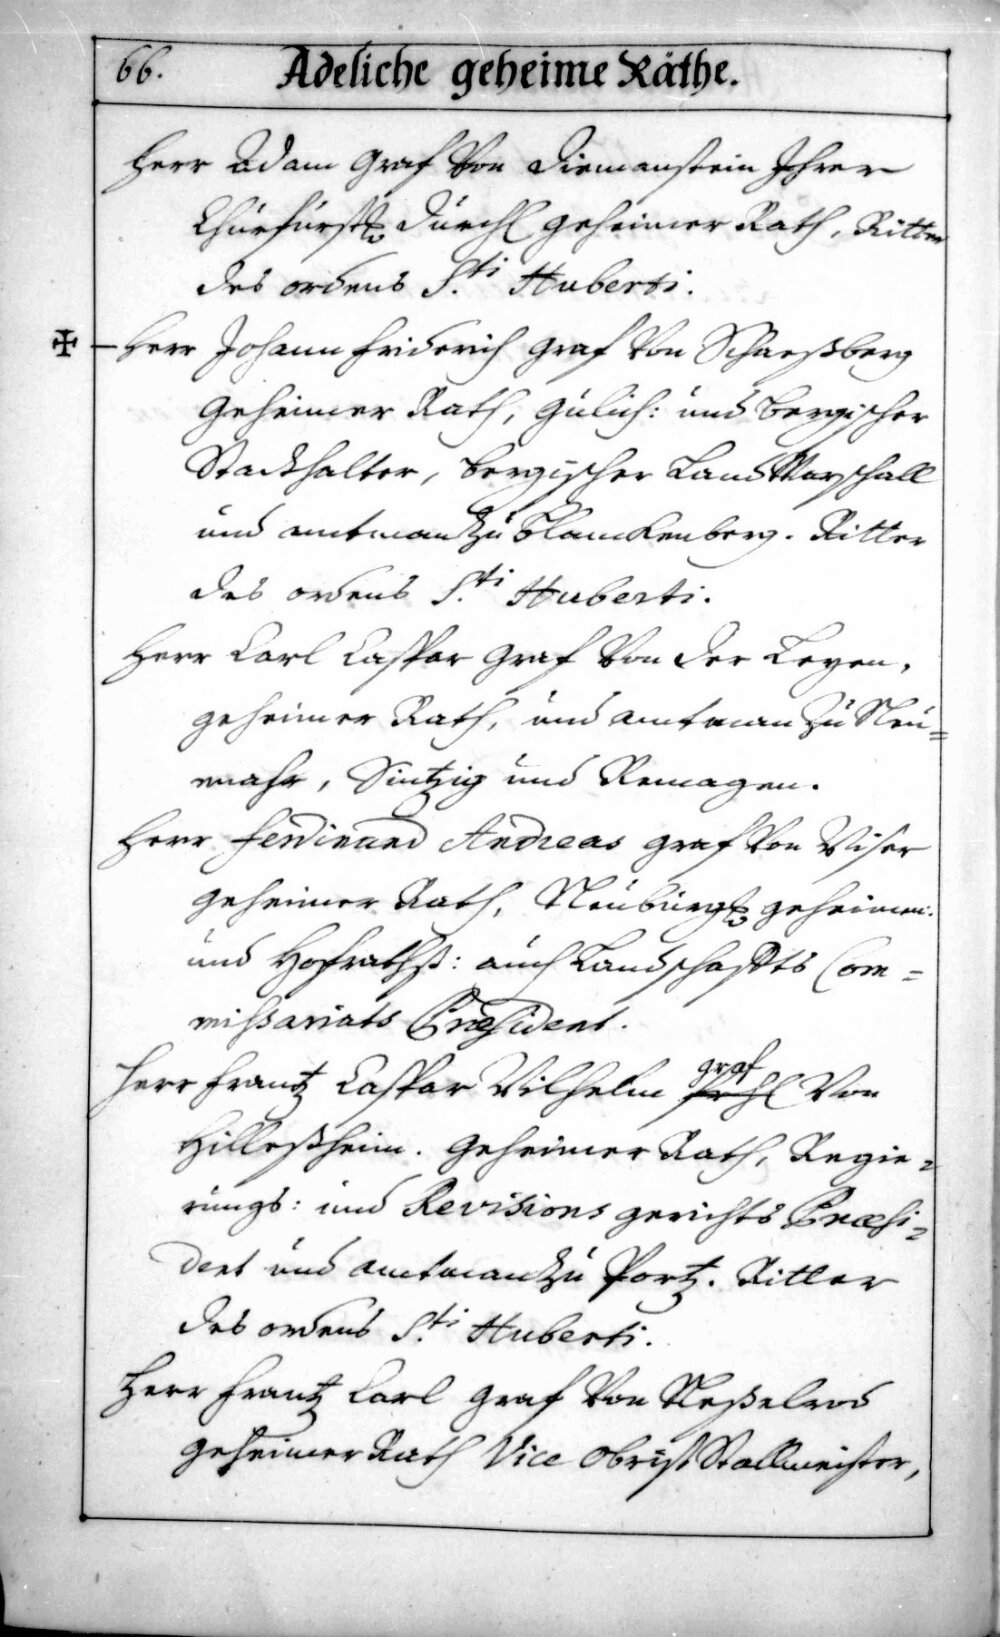 66. Adeliche geheime Räthe.
Herr Adam Graf Von Diemanstein Ihrer
Chürfürstl. Dürchl geheimer Rath, Ritter
des ordens S.ti Huberti.
✠ – Herr Johann Friderich Graf Von Schaesßberg
Geheimer Rath, Gülich: und bergischer
Stadthalter, bergischer Land Marschall
und amtman zu Blanckenberg. Ritter
des ordens S.ti Huberti.
Herr Carl Caspar Graf Von der Leyen,
geheimer Rath, und amtman zu Neu=
enahr, Sintzig und Remagen.
Herr Ferdinand Andreas graf Von Wiser
geheimer Rath, Neubürgl. geheimen:
und Hofraths: auch Landschaffts Com=
missariats Præsident.
Herr Frantz Caspar Wilhelm graf Von
Hilleßheim. Geheimer Rath, Regie=
rungs: und Revisions gerichts Præsi=
dent und amtman zu Portz. Ritter
des ordens S.ti Huberti.
Herr Frantz Carl graf Von Neßelrod
geheimer Rath Vice Obrist Stallmeister,